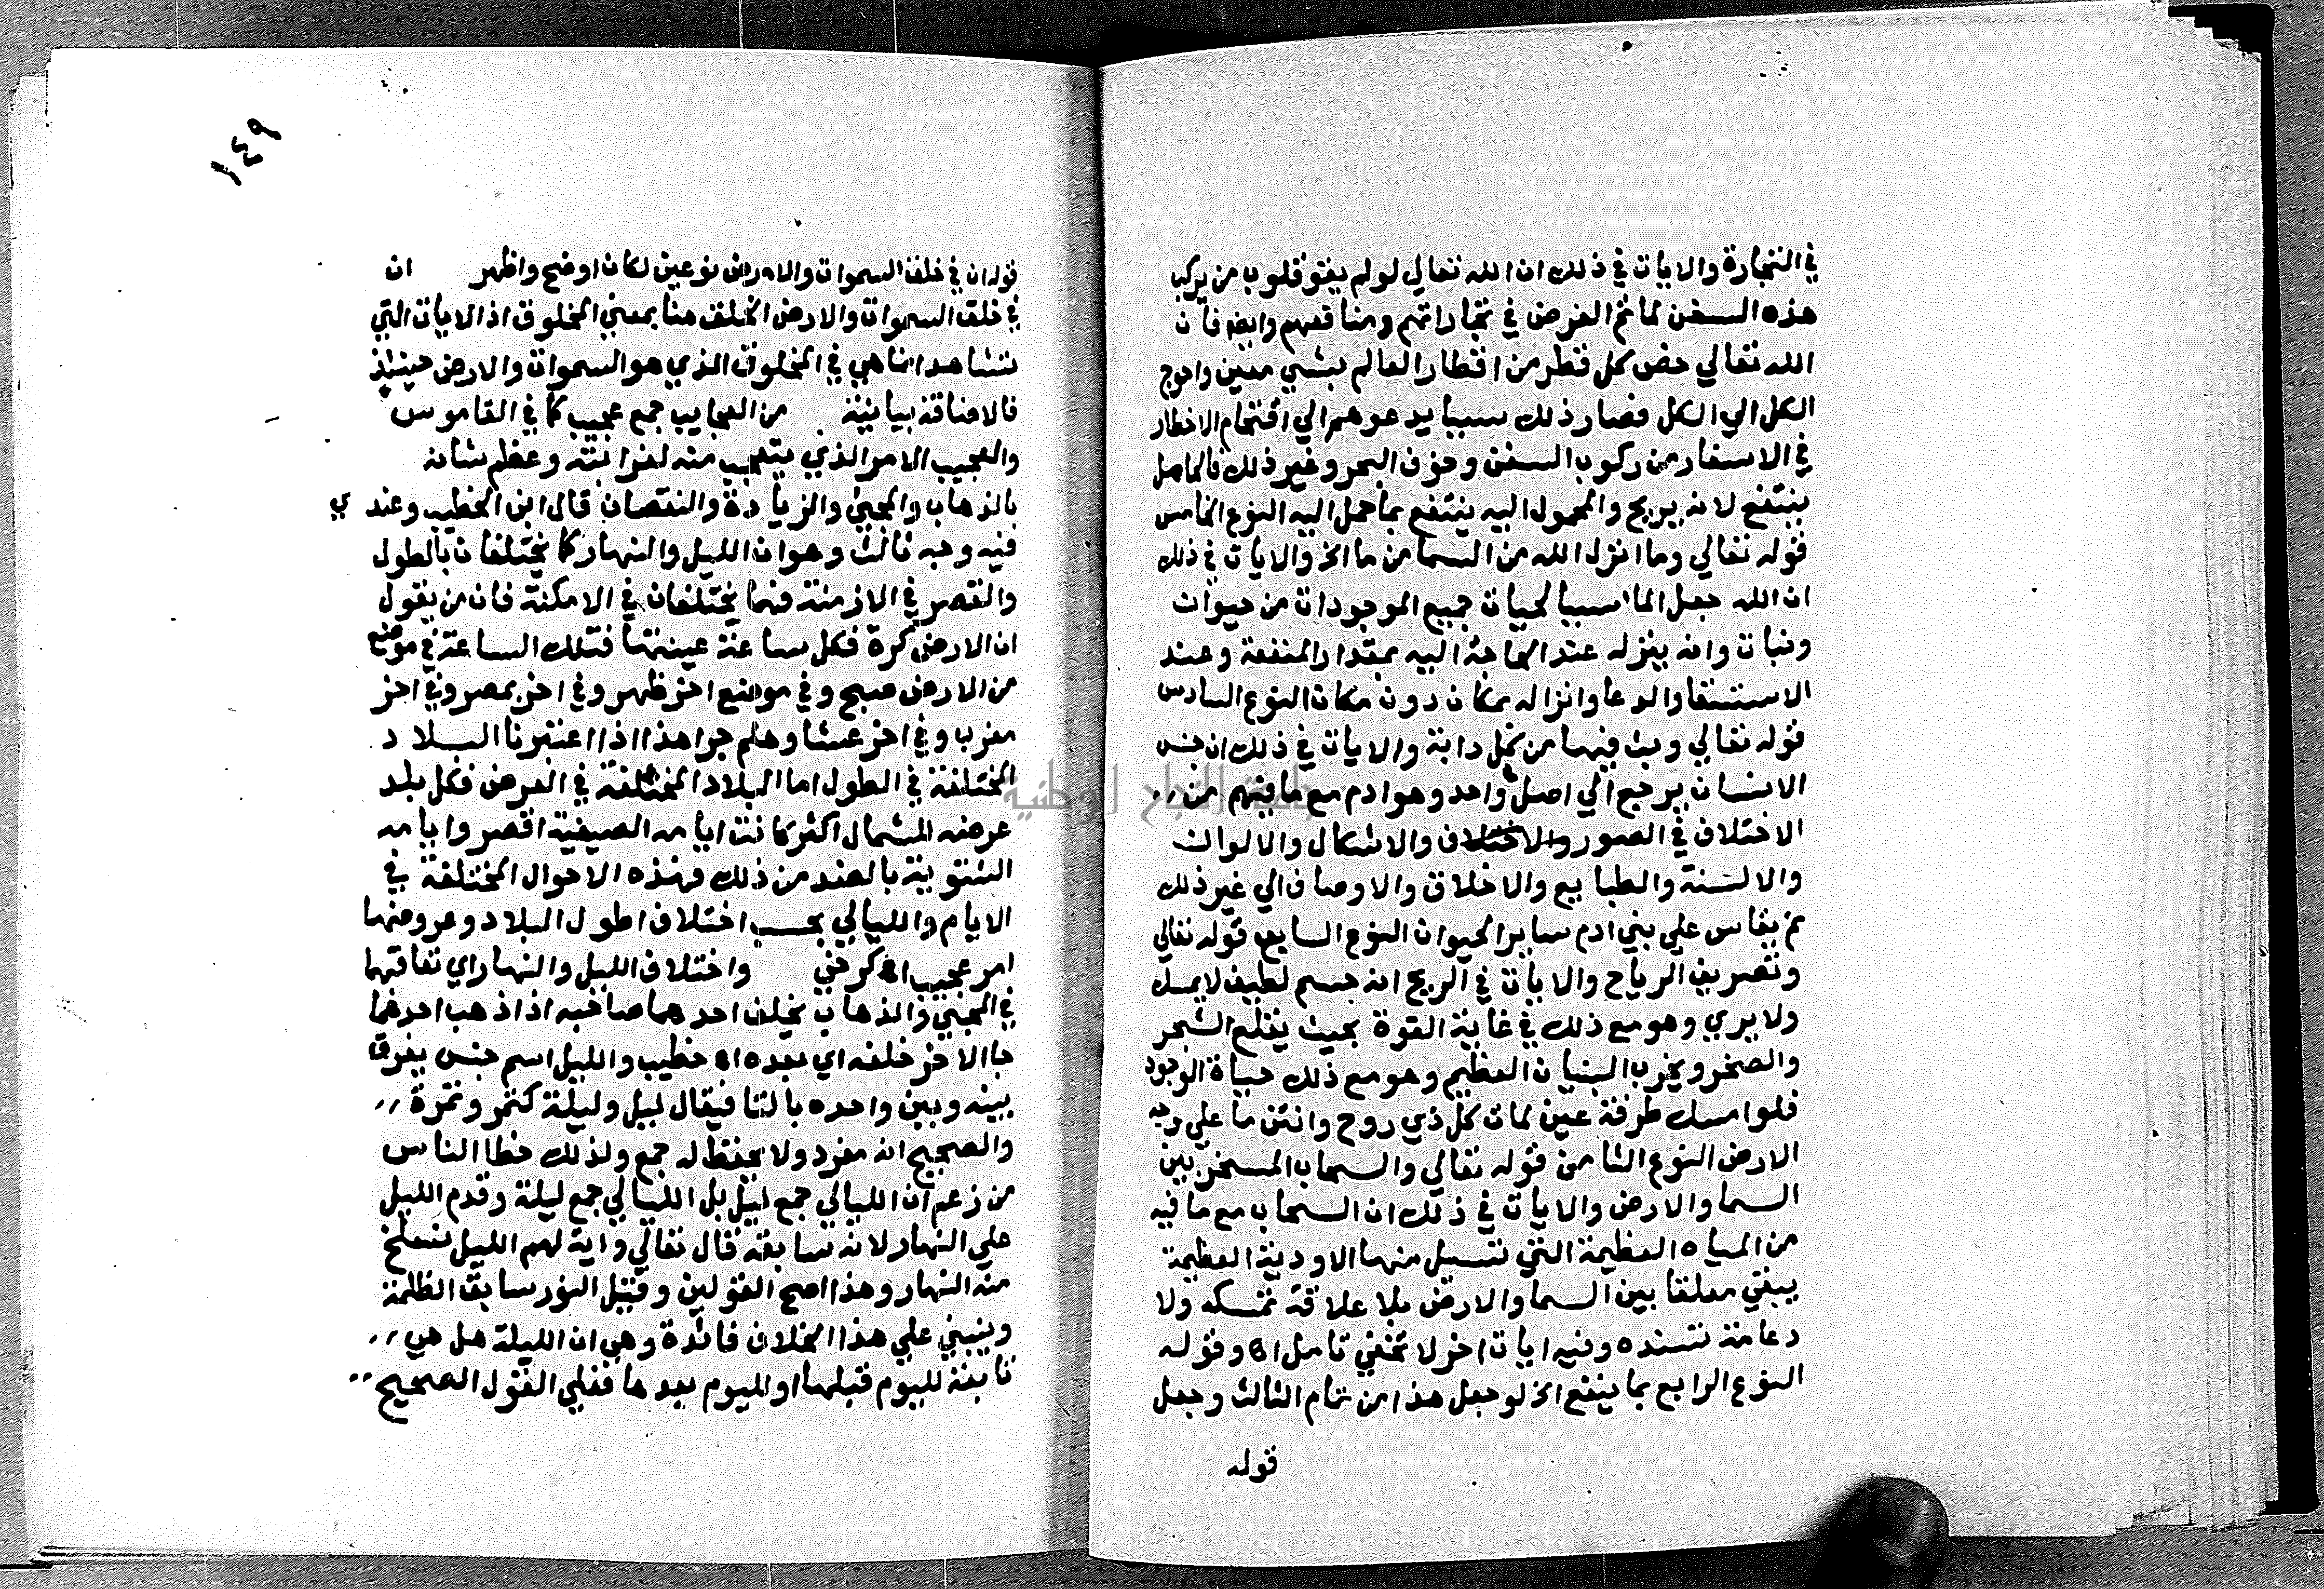 في التجارة والايات في ذلك ان الله تعالي لولم يقو قلوب من يركب
هذه السفن لما تم الغرض في تجاراتهم ومنافعهم وايضا فان
الله تعالي خص كل قطر من اقطار العالم بشي معين واحوج
الكل الي الكل فصار ذلك سببا يدعوهم الي اقتحام الاخطار
في الاسفار من ركوب السفن وخوف البحر وغير ذلك فالحامل
ينتفع لانه يربح والمحمول اليه ينتفع بما حمل اليه النوع الخامس
قوله تعالي وما انزل الله من السما من ما الخ والايات في ذلك
ان الله جعل الما سببا لحيات جميع الموجودات من حيوان
ونبات وانه ينزله عند الحاجة اليه بمقدار المنفعة وعند
الاستسقا والدعا وانزاله بمكان دون مكان النوع السادس
قوله تعالي وبث فيها من كل دابة والايات في ذلك ان جنس
الانسان يرجع الي اصل واحد وهو ادم مع ما فيهم من
الاختلاف في الصور والاختلاف والاشكال والالوان
والالسنة والطبايع والاخلاق والاوصاف الي غير ذلك
ثم يقاس علي بني ادم ساير الحيوان النوع السابع قوله تعالي
وتصريف الرياح والايات في الريح انه جسم لطيف لايمسك
ولا يري وهو مع ذلك في غاية القوة بحيث يقلع الشجر
والصخر ويخرب البنيان العظيم وهو مع ذلك حياة الوجود
فلو امسك طرفة عين لمات كل ذي روح وانتن ما علي وجه
الارض النوع الثامن قوله تعالي والسحاب المسخر بين
السما والارض والايات في ذلك ان السحاب مع ما فيه
من المياه العظيمة التي تسيل منها الاودية العظيمة
يبقي معلقا بين السما والارض بلا علاقة تمسكه ولا
دعامة تسنده وفيه ايات اخر لا تخفي تامل اه وقوله
النوع الرابع بما ينفع الخ لو جعل هذا من تمام الثالث وجعل
قوله
١٤٩
قوله ان في خلق السموات والارض نوعين لكان اوضح واظهر ان
في خلق السموات والارض الخلق هنا بمعني المخلوق اذ الايات التي
تشاهد انما هي في المخلوق الذي هو السموات والارض حينئذ
فالاضافة بيانية من العجايب جمع عجيب كما في القاموس
والعجيب الامر الذي يتعجب منه لغرابته وعظم شانه
بالذهاب والمجيئ والزيادة والنقصان قال ابن الخطيب وعندي
فيه وجه ثالث وهو ان الليل والنهار كما يختلفان بالطول
والقصر في الازمنة فهما يختلفان في الامكنة فان من يقول
ان الارض كرة فكل ساعة عينتها فتلك الساعة في موضع
من الارض صبح وفي موضع اخر ظهر وفي اخر عصر وفي اخر
مغرب وفي اخر عشا وهلم جرا هذا اذا اعتبرنا البلاد
المختلفة في الطول اما البلاد المختلفة في العرض فكل بلد
عرضه للشمال اكثر كانت ايامه الصيفية اقصر وايامه
الشتوية بالضد من ذلك فهذه الاحوال المختلفة في
الايام والليالي بحسب اختلاف اطول البلاد وعروضها
امر عجيب اه كرخي واختلاف الليل والنهار اي تعاقبهما
في المجيئ والذهاب يخلف احدهما صاحبه اذا ذهب احدهما
جا الاخر خلفه اي بعده اه خطيب والليل اسم جنس يفرق
بينه وبين واحده بالتا فيقال ليل وليلة كتمر وتمرة
والصحيح انه مفرد ولا يحفظ له جمع ولذلك خطا الناس
من زعم ان الليالي جمع ليل بل الليالي جمع ليلة وقدم الليل
علي النهار لانه سابقه قال تعالي واية لهم الليل نسلخ
منه النهار وهذا اصح القولين وقيل النور سابق الظلمة
وينبني علي هذا الخلاف فائدة وهي ان الليلة هل هي
تابعة لليوم قبلها او لليوم بعدها فعلي القول الصحيح
جامعة النجاح الوطنية